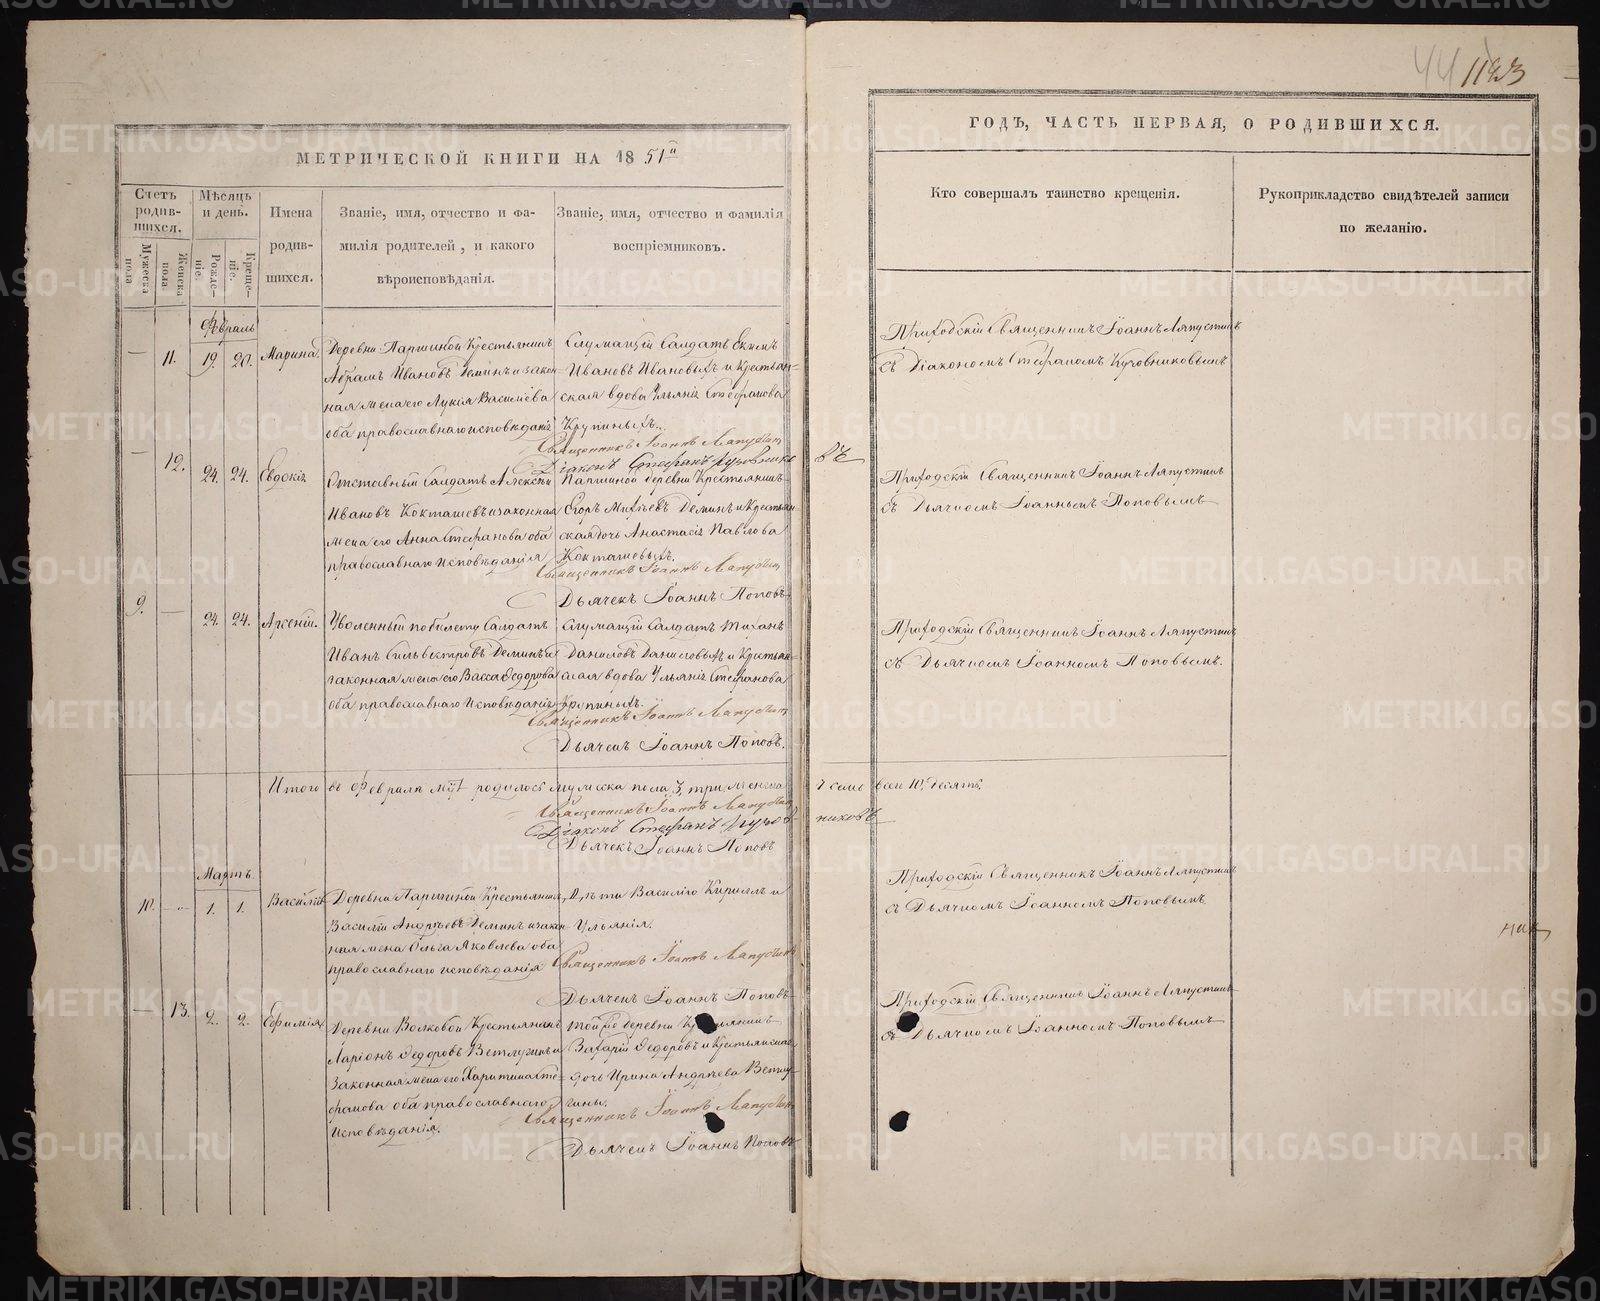 44 1123
МЕТРИЧЕСКОЙ КНИГИ НА 1851й
ГОДЪ, ЧАСТЬ ПЕРВАЯ, О РОДИВШИХСЯ.
Счетъ родив-шихся.
Мужеска пола
Женска пола.
Мѣсяцъ и день.
Рожде-ніе.
Креще-ніе.
Имена
родив-
шихся.
Званіе, имя, отчество и фа-
милія родителей, и какого
вѣроисповѣданія.
Званіе, имя, отчество и фамилія
воспріемниковъ.
Кто совершалъ таинство крещенія.
Рукоприкладство свидѣтелей записи
по желанію.
Февраль
— 11. 19. 20. Марина.
Деревни Паршиной Крестьянинъ
Абрамъ Ивановъ Деминъ и закон-
ная жена его Лукія Василіева
оба православнаго исповѣданія
Служащій Салдатъ Екимъ
Ивановъ Ивановыхъ и Крестьян-
ская вдова Ульянія Стефанова
Крупиныхъ.
Священникъ Іоаннъ Ляпустинъ
Діаконъ Стефанъ Кузовниковъ
Приходскій Священникъ Іоаннъ Ляпустинъ
съ Діакономъ Стефаномъ Кузовниковымъ
— 12. 24. 24. Евдокія
Отставный Салдатъ Алексѣй
Ивановъ Кокташевъ и законная
жена его Анна Стефанова оба
православнаго исповѣданія
Паршиной деревни Крестьянинъ
Егоръ Михѣевъ Деминъ и Крестьян-
ская дочь Анастасія Павлова
Кокташевыхъ.
Священникъ Іоаннъ Ляпустинъ
Дьячекъ Іоаннъ Поповъ
Приходскій Священникъ Іоаннъ Ляпустинъ
съ Дьячкомъ Іоанномъ Поповымъ
9. — 24. 24. Арсеній.
Уволенный по билету Салдатъ
Иванъ Сильвестровъ Деминъ и
законная жена его Васса Федорова
оба православнаго исповѣданія
Служащій Салдатъ
Даниловъ Даниловыхъ и Крестьян-
ская вдова Ульянія Стефанова
Крупиныхъ.
Священникъ Іоаннъ Ляпустинъ
Дьячекъ Іоаннъ Поповъ.
Приходскій Священникъ Іоаннъ Ляпустинъ
съ Дьячкомъ Іоанномъ Поповымъ.
Итого въ Февралѣ родилось мужеска пола 3, три женска 7 семь всѣхъ 10. десять.
Священникъ Іоаннъ Ляпустинъ
Діаконъ Стефанъ Кузовниковъ
Дьячекъ Іоаннъ Поповъ
Мартъ.
10. — 1. 1. Василій
Деревни Паршиной Крестьянина
Василій Андрѣевъ Деминъ и закон-
ная жена Ольга Яковлева оба
православнаго исповѣданія
Дѣти Василіго Кириллъ и
Ульянія.
Священникъ Іоаннъ Ляпустинъ
Дьячекъ Іоаннъ Поповъ
Приходскій Священникъ Іоаннъ Ляпустинъ
съ Дьячкомъ Іоанномъ Поповымъ
— 13. 2. 2. Ефимія
Деревни Волковой Крестьянинъ
Ларіонъ Федоровъ Ветлугинъ и
Законная жена его Харитина Сте-
фанова оба православнаго
исповѣданія.
Той же деревни Крестьянинъ
Захарій Федоровъ и Крестьянская
дочь Ирина Андрѣева Ветлу-
гины.
Священникъ Іоаннъ Ляпустинъ
Дьячекъ Іоаннъ Поповъ
Приходскій Священникъ Іоаннъ Ляпустинъ
съ Дьячкомъ Іоанномъ Поповымъ
METRIKI.GASO-URAL.RU